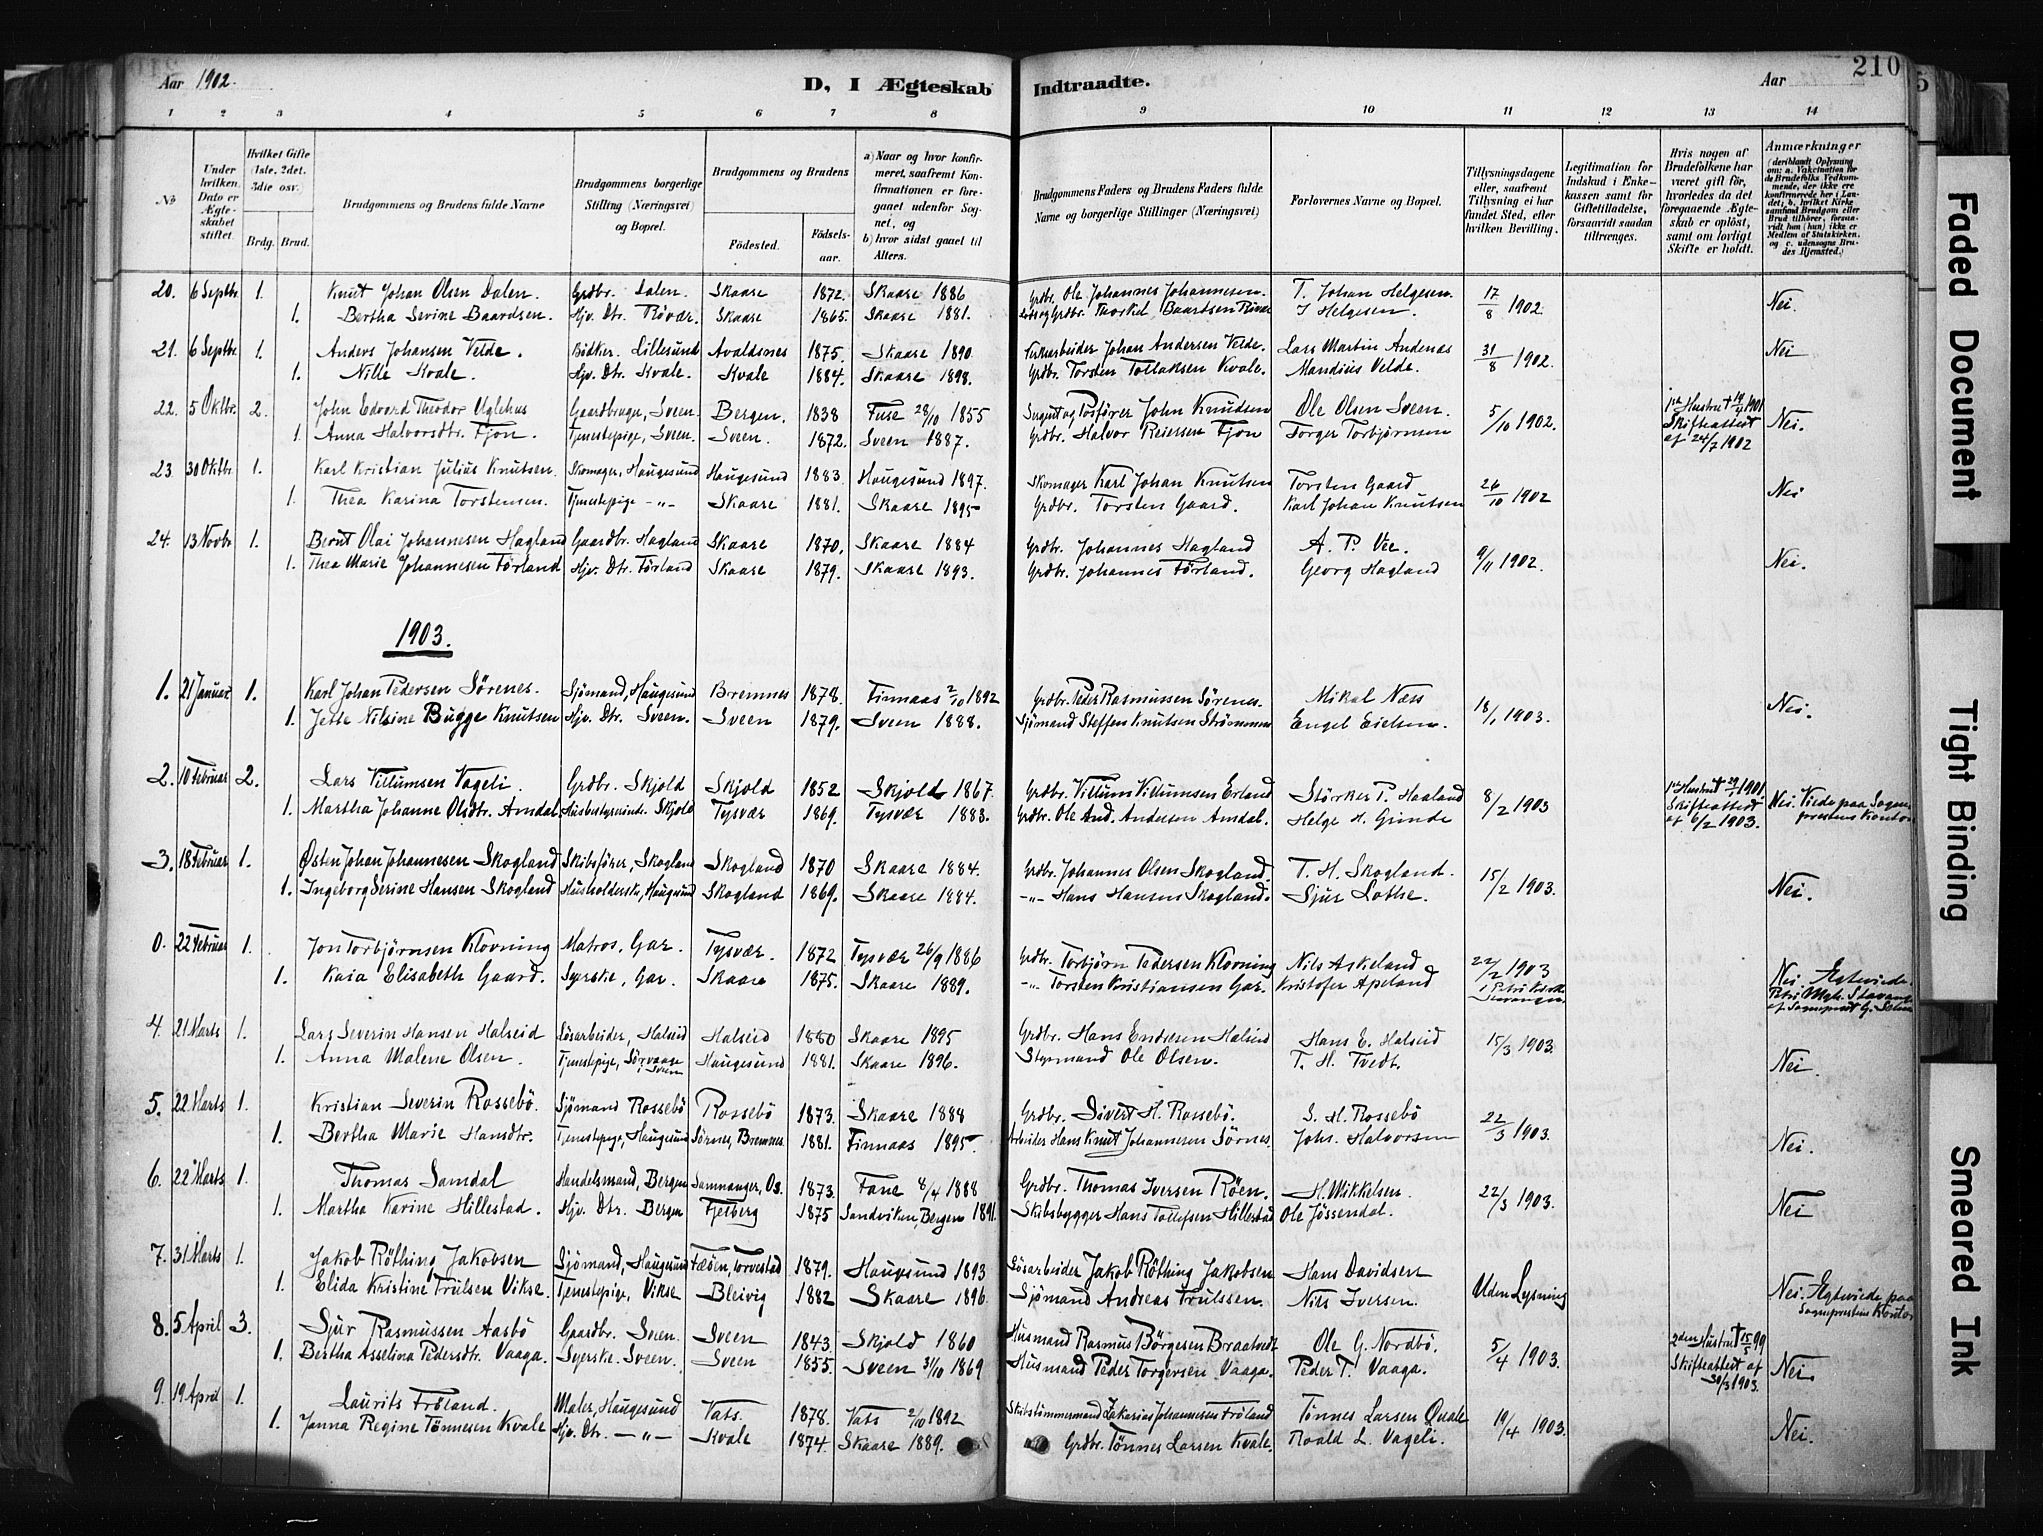 Aar 1902.
D, I Ægteskab Indtraadte.
Aar
210
1 2 3 4 5 6 7 8 9 10 11 12 13 14
No
Under hvilken Dato er Ægteskabet stiftet.
Hvilket Gifte (1ste, 2det, 3die osv.)
Brdg. Brud.
Brudgommens og Brudens fulde Navne
Brudgommens borgerlige Stilling (Næringsvei) og Bopæl.
Brudgommens og Brudens
Födested.
Födselsaar.
a) Naar og hvor konfirmeret, saafremt Konfirmationen er foregaaet udenfor Sognet, og
b) hvor sidst gaaet til Alters.
Brudgommens Faders og Brudens Faders fulde Navne og borgerlige Stillinger (Næringsvei)
Forlovernes Navne og Bopæl.
Tillysningsdagene eller, saafremt Tillysning ei har fundet Sted, efter hvilken Bevilling.
Legitimation for Indskud i Enkekassen samt for Giftetilladelse, forsaavidt saadan tiltrænges.
Hvis nogen af Brudefolkene har været gift før, hvorledes da det foregaaende Ægteskab er opløst, samt om lovligt Skifte er holdt.
Anmærkninger
20. 6 Septbr. 1. Knut Johan Olsen Dalen. Grdbr. Dalen. Skaare 1872. Skaare 1886 Grdbr. Ole Johannes Johannesen. T. Johan Helgesen. 17/8 1902. Nei.
1. Bertha Serine Baardsen. Hjv. Dtr. Röver. Skaare 1865. Skaare 1881. Thorkel Baardsen I Helgesen.
21. 6 Septbr. 1. Anders Johansen Velde. Bödker. Lillesund Avaldsnes 1875. Skaare 1890. Johan Andersen Velde. Lars Martin Andenæs 31/8 1902. Nei
1. Nille Kvale. Hjv. Dtr. Kvale. Kvale 1884. Skaare 1898. Grdbr. Torsten Tollaksen Kvale. Mandius Velde.
22. 5 Oktbr. 2. John Edvard Theodor Uglehus Gaardbruger, Sveen. Bergen. 1838 Fuse 28/10 1855 John Knudsen Ole Olsen Sveen. 5/10 1902. 1ste Hustru † 1901 Skifteattest af 24/7 1902 Nei.
1. Anna Halvorsdtr. Fjon. Tjenestepige, Sveen. Sveen. 1872. Sveen 1887. Grdbr. Halvor Reiersen Fjon Torger Torbjørnsen
23 30 Oktbr. 1. Karl Kristian Julius Knutsen. Skomager, Haugesund Haugesund 1883. Haugesund 1897. Skomager Karl Johan Knutsen Torsten Gaard 26/10 1902 Nei
1. Thea Karina Torstensen. Tjenestepige -"- Skaare 1881. Skaare 1895 Grdbr. Torsten Gaard. Karl Johan Knutsen
24. 13 Novbr. 1. Bernt Olai Johannesen Hagland Gaardbr. Hagland Skaare 1870. Skaare 1884 Grdbr. Johannes Hagland A. P. Vee. 9/11 1902. Nei.
1. Thea Marie Johannesen Förland Hjv. Dtr. Förland Skaare 1879. Skaare 1893. Grdbr. Johannes Förland. Georg Hagland
1903.
1. 21 Januar 1. Karl Johan Pedersen Sörenes. Sjömand, Haugesund Bremnes 1878. Finnaas 2/10 1892 Grdbr. Peder Rasmussen Sörenes. Mikal Næss 18/1 1903. Nei.
1. Jette Nilsine Bugge Knutsen Hjv. Dtr. Sveen. Sveen 1879. Sveen 1888. Sjömand Steffen Knutsen Strömmen Engel Eielsen.
2. 10 Februar 2. Lars Villumsen Vageli. Grdbr. Skjold Skjold 1852 Skjold 1867. Grdbr. Villum Villumsen Erland Störker T. Haaland 8/2 1903 1ste Hustru † 1901 Skifteattest af 6/2 1903. Nei. Viede paa Sogneprestens Kontor
1. Martha Johanne Olsdtr. Amdal Husbestyrerinde. Skjold Tysvær 1869. Tysvær 1883. Grdbr. Ole And. Andersen Amdal. Helge H. Grinde
3. 18 Februar 1. Østen Johan Johannesen Skogland Skibsfører, Skogland Skogland 1870 Skaare 1884. Grdbr. Johannes Olsen Skogland. T. H. Skogland. 15/2 1903. Nei.
1. Ingeborg Serine Hansen Skogland Husholderske, Haugesund Skogland 1869. Skaare 1884. -"- Hans Hansen Skogland. Sjur Lothe.
0. 22 Februar 1. Jon Torbjørnsen Klovning Matros, Gar. Tysvær. 1872 Tysvær 26/9 1886 Grdbr. Torbjørn Pedersen Klovning Nils Askeland 22/2 1903 Nei. Egteviede
1. Kaia Elisabeth Gaard. Syerske, Gar. Skaare 1875. Skaare 1889. -"- Torsten Kristiansen Gar. Kristofer Apeland
4 21 Marts 1. Lars Severin Hansen Halseid Lösarbeider, Halseid Halseid 1880 Skaare 1895 Grdbr. Hans Endresen Halseid Hans E. Halseid 15/3 1903. Nei.
1. Anna Malene Olsen. Tjenestepige, Sörvaage i Sveen Haugesund 1881. Skaare 1896. Styrmand Ole Olsen. T. H. Tvedt.
5. 22 Marts 1. Kristian Severin Rossebö. Sjömand Rossebö Rossebö 1873. Skaare 1888 Grdbr. Sivert H. Rossebö. S. H. Rossebö 22/3 1903. Nei.
1. Bertha Marie Hansdtr. Tjenestepige, Haugesund Sörnes, Bremnes 1881. Finnaas 1895. Arbeider Hans Knut Johannesen Sörnes. Johs. Halvorsen
6. 22 Marts 1. Thomas Samdal Handelsmand, Bergen Samnanger, Os. 1873. Fane 8/4 1888 Grdbr. Thomas Iversen Röen. H. Mikkelsen. 22/3 1903. Nei
1. Martha Karine Hillestad. Hjv. Dtr. Bergen Fjelberg 1875 Sandviken, Bergen 1891. Skibsbygger Hans Tollefsen Hillestad Ole Jössendal.
7. 31 Marts 1. Jakob Röthing Jakobsen Sjömand, Haugesund Fæöen, Torvestad 1879. Haugsund 1893 Lösarbeider Jakob Röthing Jakobsen Hans Davidsen Uden Lysning Nei. Egteviede paa Sogneprestens Kontor
1. Elida Kristine Trulsen Vikse. Tjenestepige, Vikse Bleivig 1882 Skaare 1896. Sjömand Andreas Trulssen. Nils Iversen.
8. 5 April 3. Sjur Rasmussen Aasbö Gaardbr. Sveen. Sveen 1843. Skjold 1860 Husmand Rasmus Börgesen Braatvedt Ole G. Nordbö. 5/4 1903. 2den Hustru † 15/5 99 Skifteattest af 30/3 1903. Nei.
1. Bertha Asselina Pedersdtr. Vaaga. Syerske. Sveen. Sveen 1855. Sveen 31/10 1869 Husmand Peder Torgersen Vaaga. Peder T. Vaaga.
9. 19 April 1. Laurits Fröland. Maler, Haugesund Vats. 1878. Vats 2/10 1892 Skibstömmermand Zakarias Johannesen Fröland Tönnes Larsen Qvale 19/4 1903. Nei.
1. Janna Regine Tönnesen Kvale Hjv. Dtr. -"- Kvale 1874 Skaare 1889. Grdbr. Tönnes Larsen Kvale. Roald L. Vageli.
Faded Document
Tight Binding
Smeared Ink